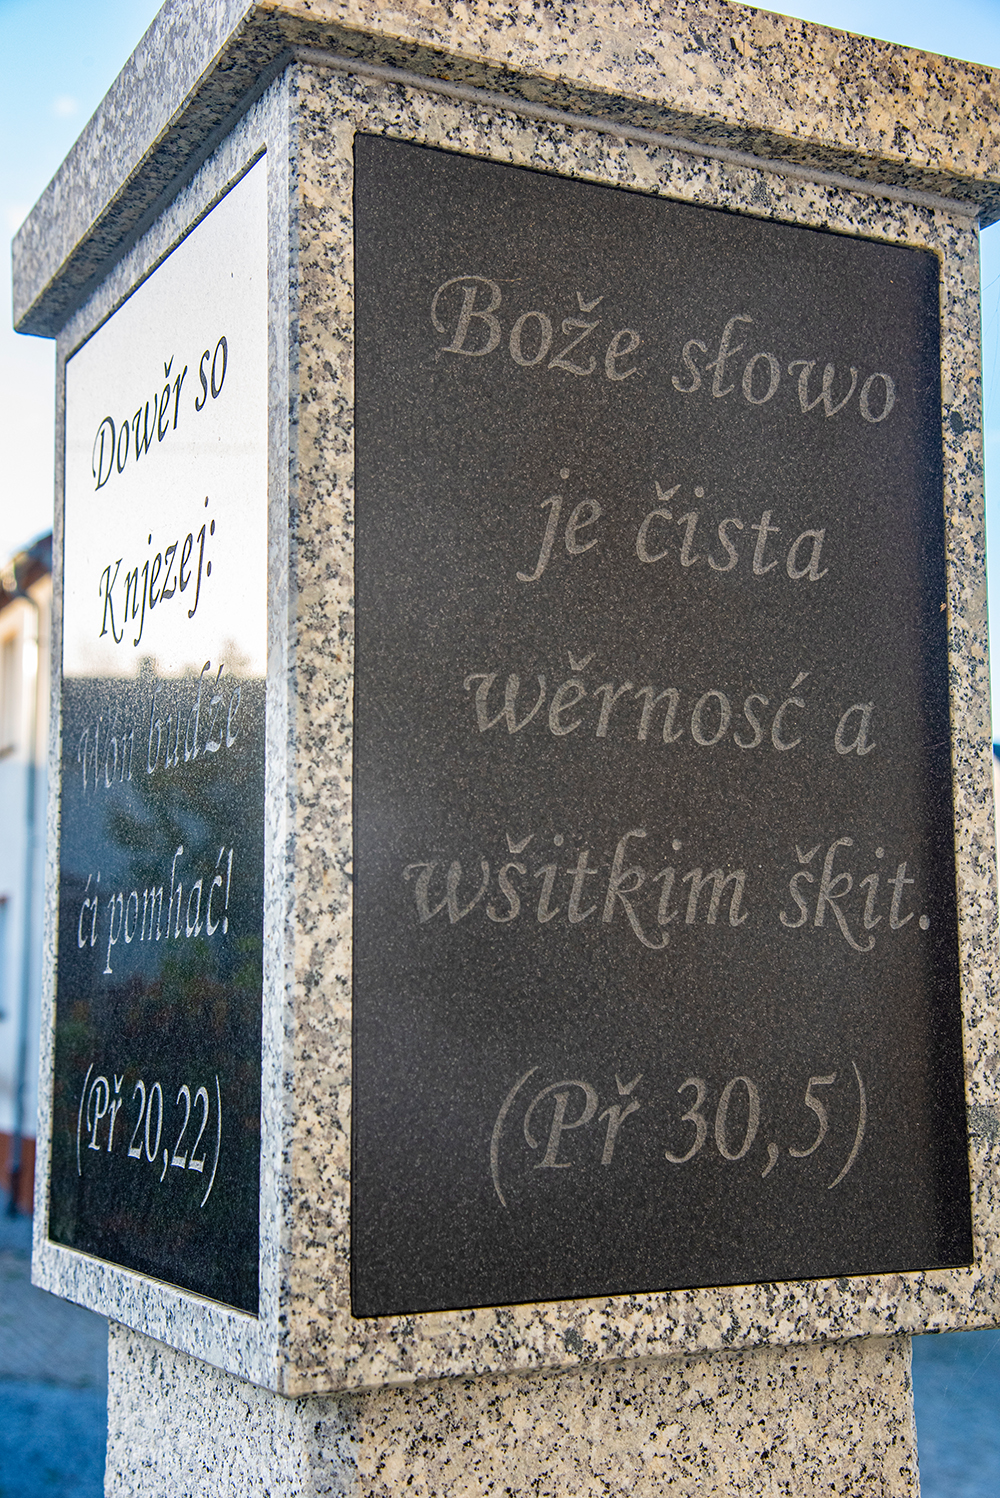 Dowěr so
Knjezej:
Wón budźe
ći pomhać!
(Př 20,22)
Bože słowo
je čista
wěrnosć a
wšitkim škit.
(Př 30,5)